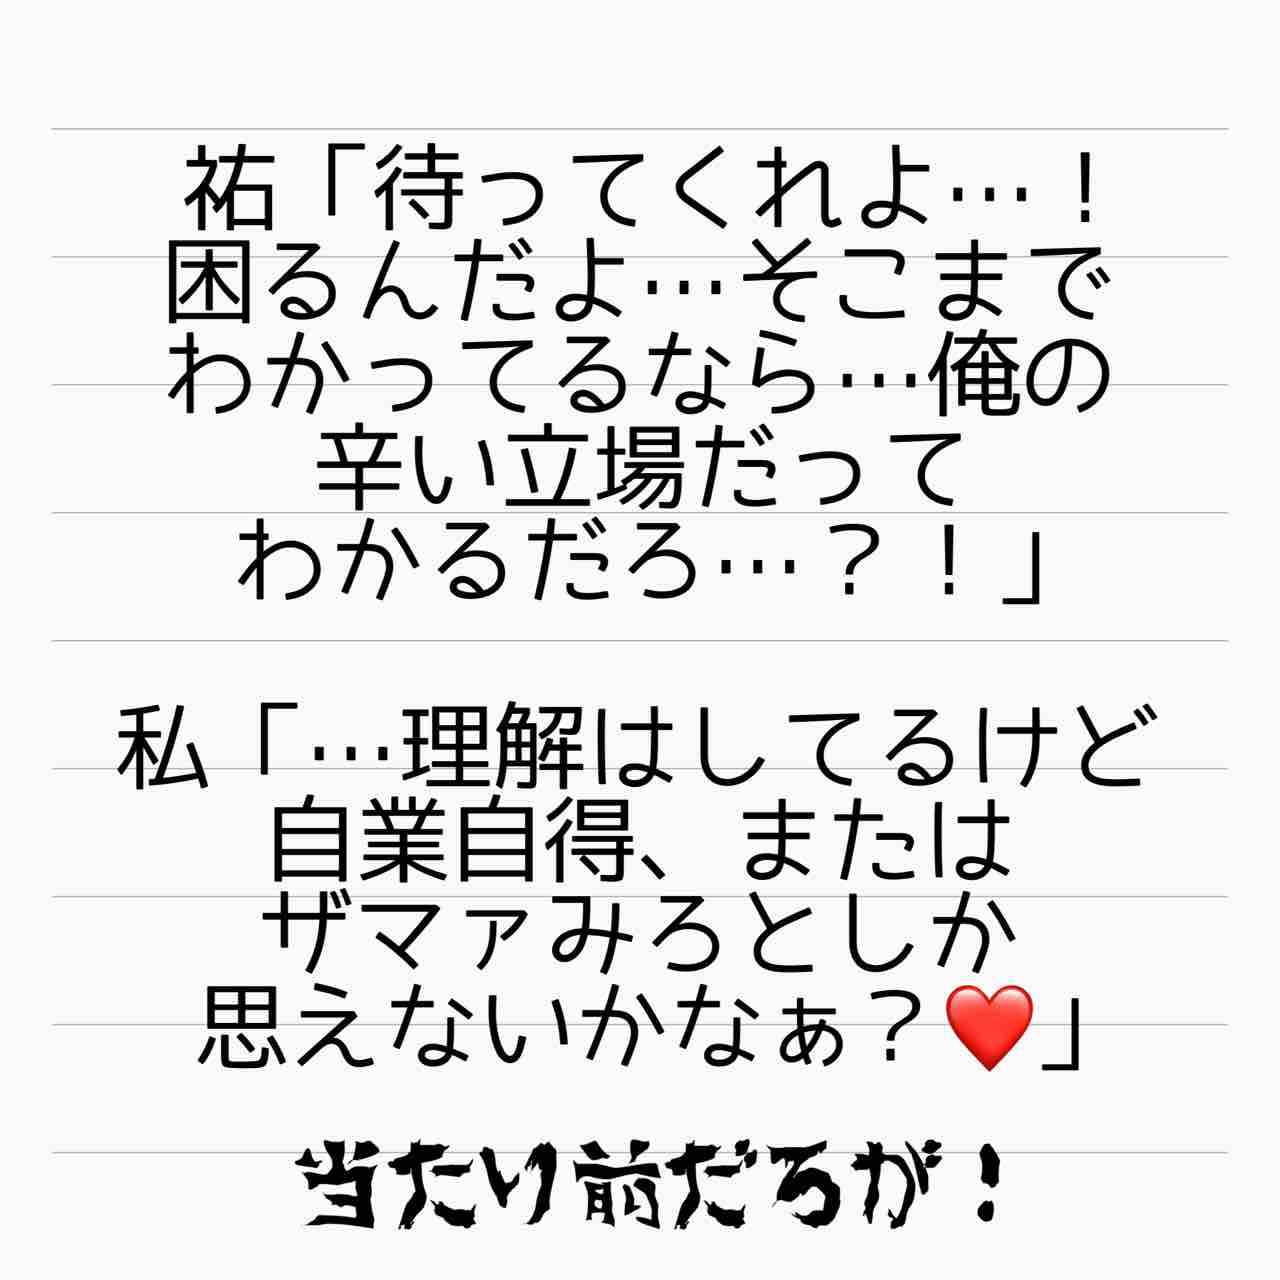 祐「待ってくれよ…！
困るんだよ…そこまで
わかってるなら…俺の
辛い立場だって
わかるだろ…？！」
私「…理解はしてるけど
自業自得、または
ザマァみろとしか
思えないかなぁ？❤️」
当たり前だろが！